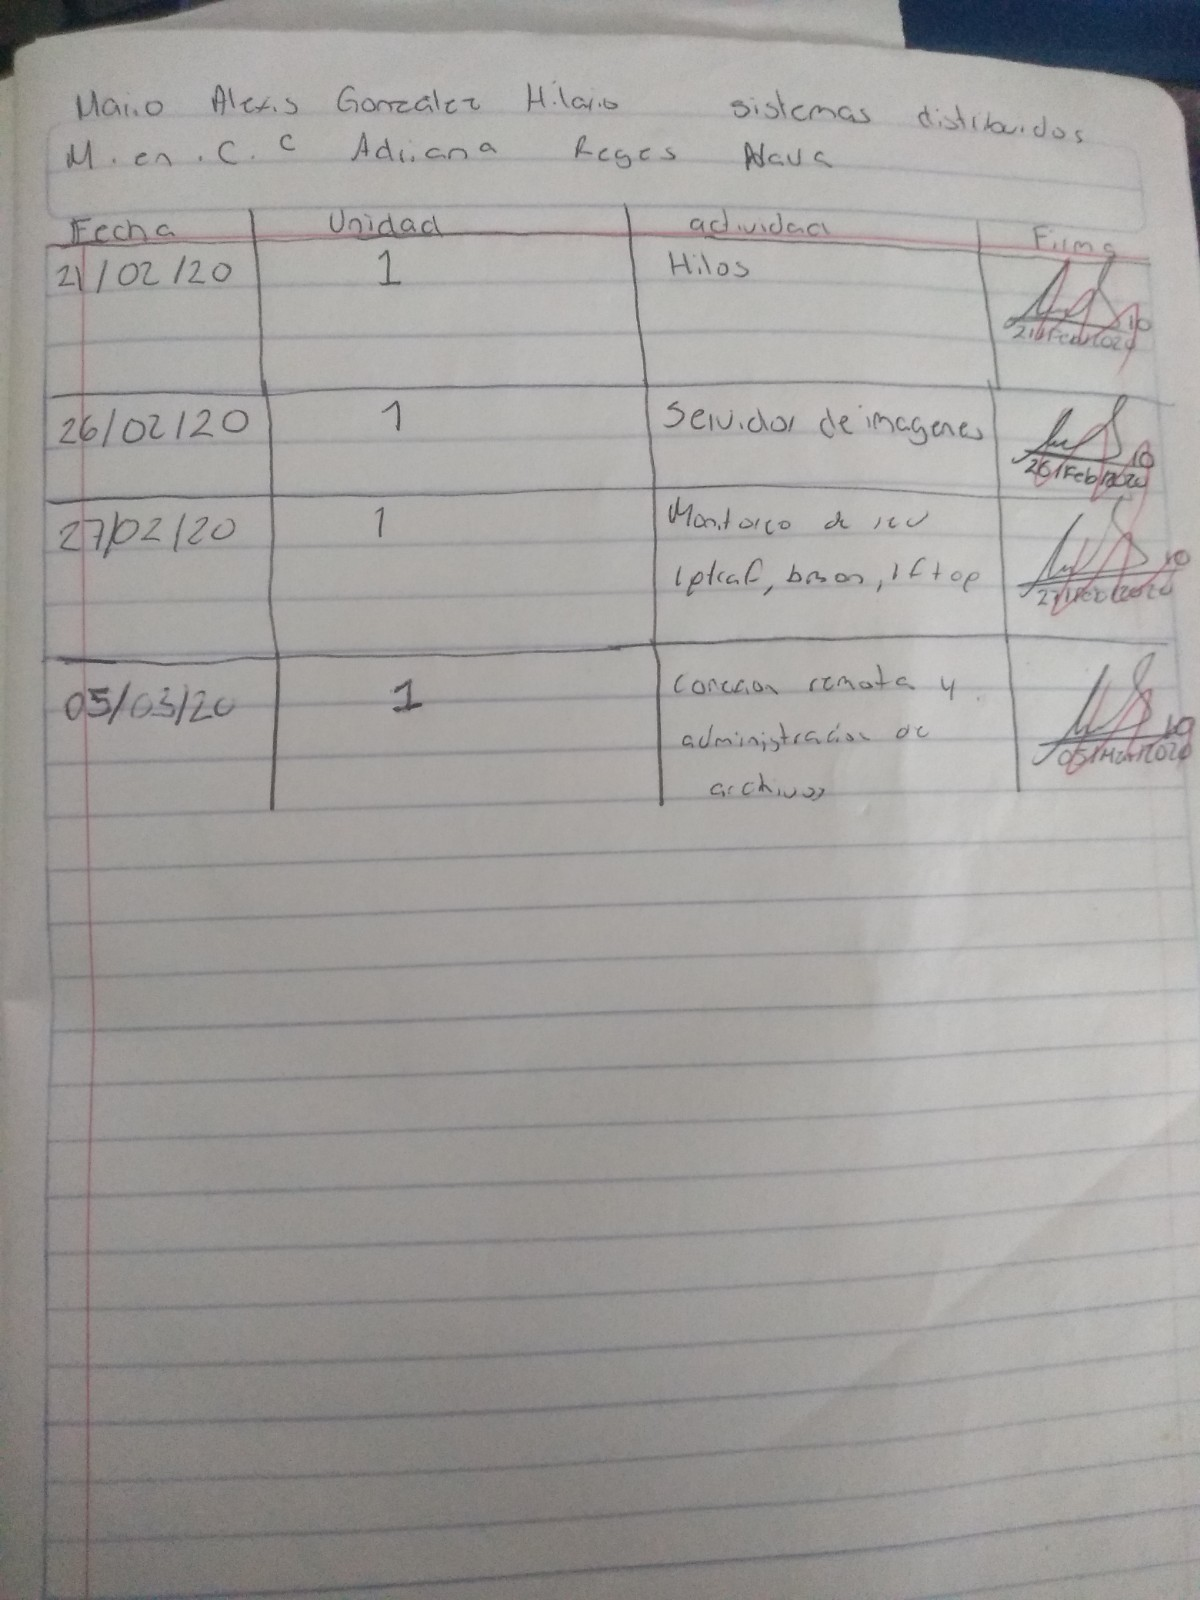 Mario Alexis Gonzalez Hilario sistemas distribuidos
M. en. C. C Adriana Reyes Nava
Fecha Unidad actividad Firma
21/02/20 1 Hilos
10
21/Feb/2020
26/02/20 1 Servidor de imagenes
10
26/Feb/2020
27/02/20 1 Monitoreo de red
iptraf, bmon, iftop
10
27/Feb/2020
05/03/20 1 conexion remota y
administracion de
archivos
10
05/Mar/2020